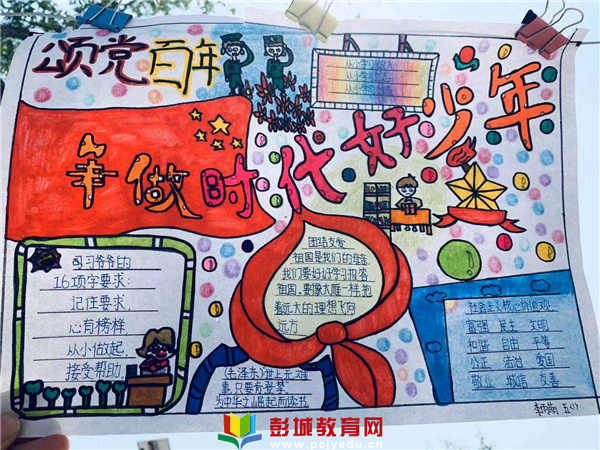 颂党百年
争做时代好少年
从小学习做人
习爷爷的
16项字要求:
记住要求,
心有榜样,
从小做起,
接受帮助,
团结友爱
祖国是我们的母亲
我们要好好学习报答
祖国,要像大雁一样,抱
着远大的理想飞向
远方
(毛泽东)世上无难
事,只要肯登攀
为中华之崛起而读书
社会主义核心价值观
富强 民主 文明
和谐 自由 平等
公正 法治 爱国
敬业 诚信 友善
五(1)
彭城教育网
www.pcjyedu.cn